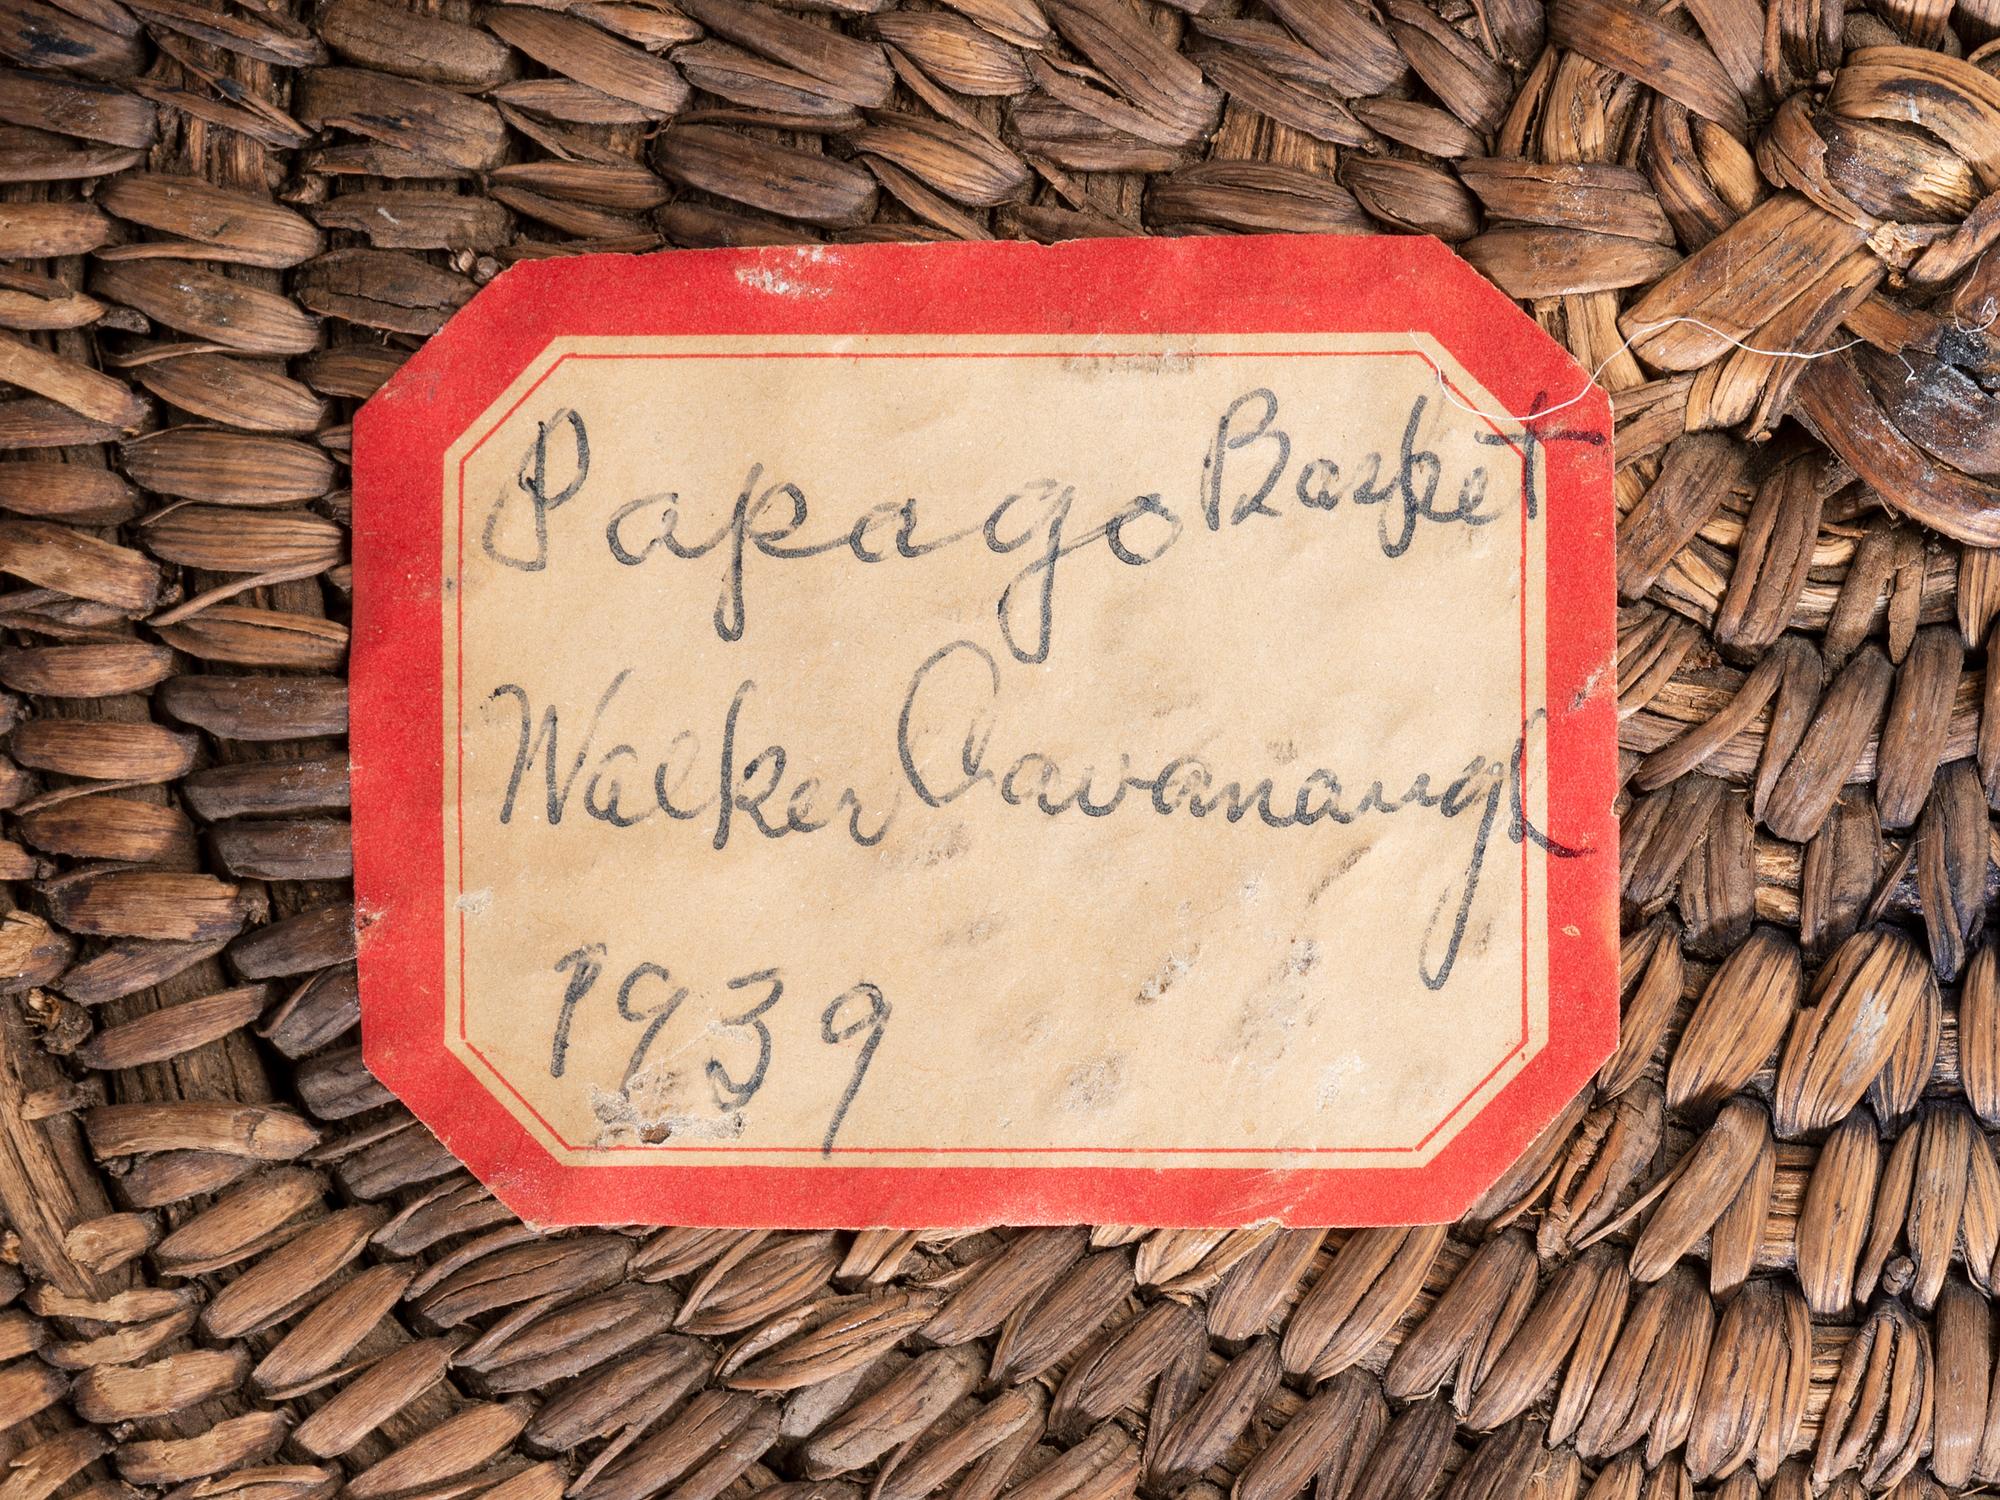 Papago Basket
Walker Cavanaugh
1939